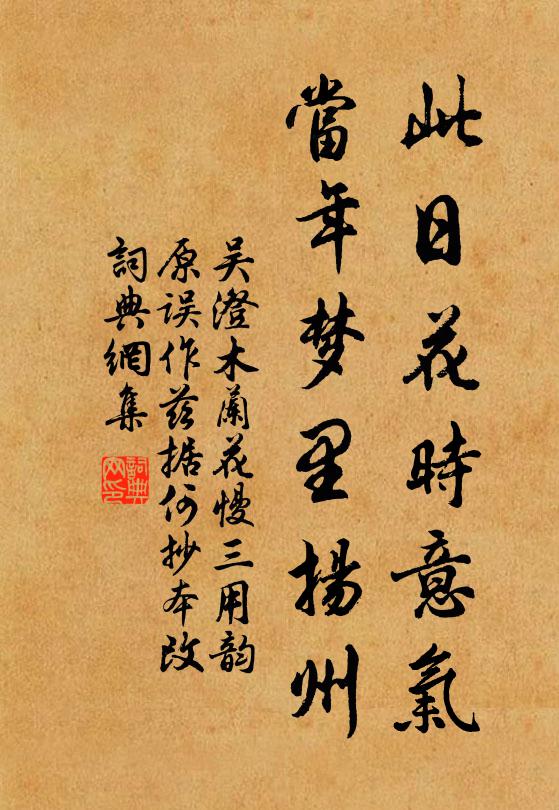 此日花時意氣
當年梦里揚州
吴澄木蘭花慢三用韵
原误作兹据何抄本改
詞典網集
詞典網印